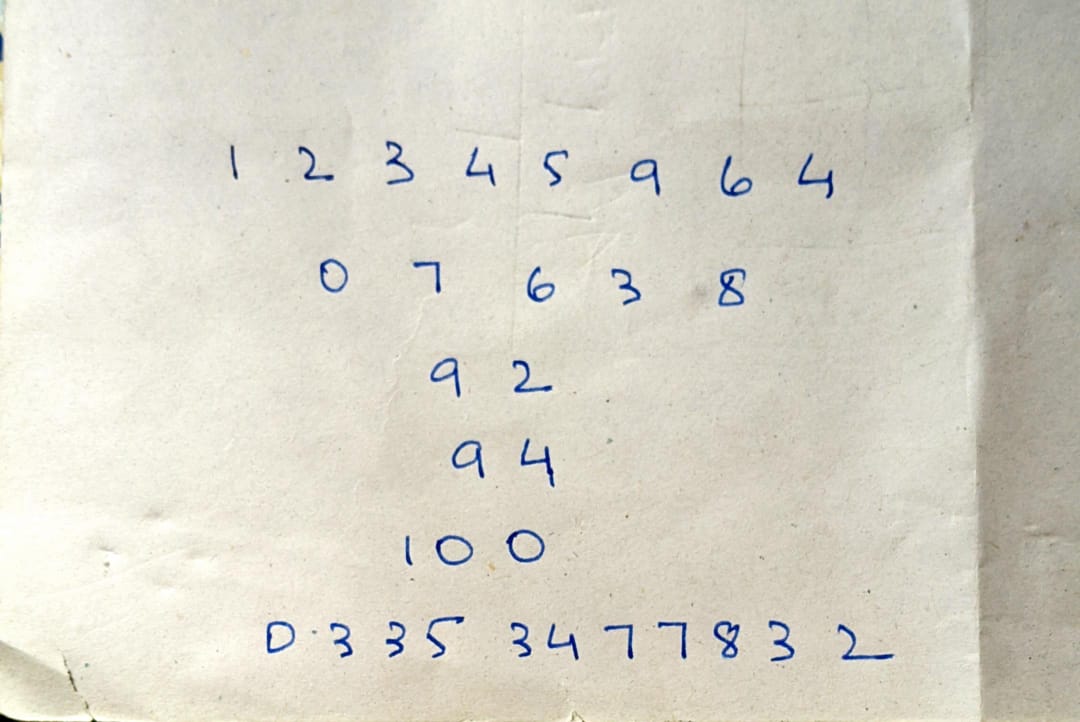 1 2 3 4 5 9 6 4
0 7 6 3 8
9 2
9 4
1 0 0
0.3 3 5 3 4 7 7 8 3 2